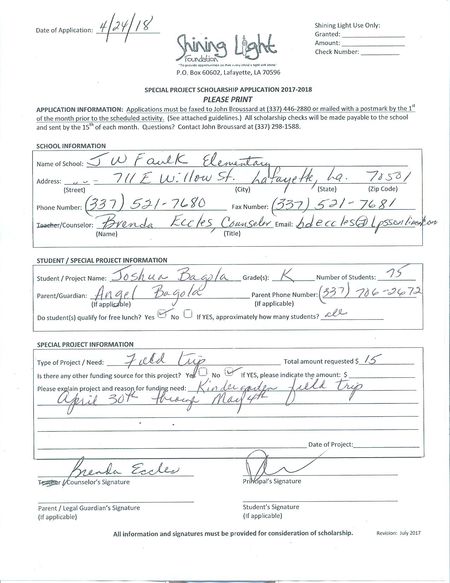 Date of Application: 4/24/18
Shining Light Use Only:
Granted:
Amount:
Check Number:
Shining Light
Foundation
P.O. Box 60602, Lafayette, LA 70596
SPECIAL PROJECT SCHOLARSHIP APPLICATION 2017-2018
PLEASE PRINT
APPLICATION INFORMATION: Applications must be faxed to John Broussard at (337) 446-2880 or mailed with a postmark by the 1st
of the month prior to the scheduled activity. (See attached guidelines.) All scholarship checks will be made payable to the school
and sent by the 15th of each month. Questions? Contact John Broussard at (337) 298-1588.
SCHOOL INFORMATION
Name of School: J W Faulk Elementary
Address: 711 E Willow St. Lafayette, La. 70501
(Street) (City) (State) (Zip Code)
Phone Number: (337) 521-7680 Fax Number: (337) 521-7681
Teacher/Counselor: Brenda Eccles, Counselor Email:
(Name) (Title)
STUDENT / SPECIAL PROJECT INFORMATION
Student / Project Name: Joshua Grade(s): K Number of Students:
Parent/Guardian: Angel Parent Phone Number: (337) 706-2672
(If applicable) (If applicable)
Do student(s) qualify for free lunch? Yes No If YES, approximately how many students? all
SPECIAL PROJECT INFORMATION
Type of Project / Need: Field trip Total amount requested $ 15
Is there any other funding source for this project? Yes No If YES, please indicate the amount: $
Please explain project and reason for funding need: Kindergarten field trip
April 30th through May 4th
Date of Project:
Brenda Eccles
Teacher / Counselor's Signature Principal's Signature
Parent / Legal Guardian's Signature Student's Signature
(If applicable) (If applicable)
All information and signatures must be provided for consideration of scholarship. Revision: July 2017